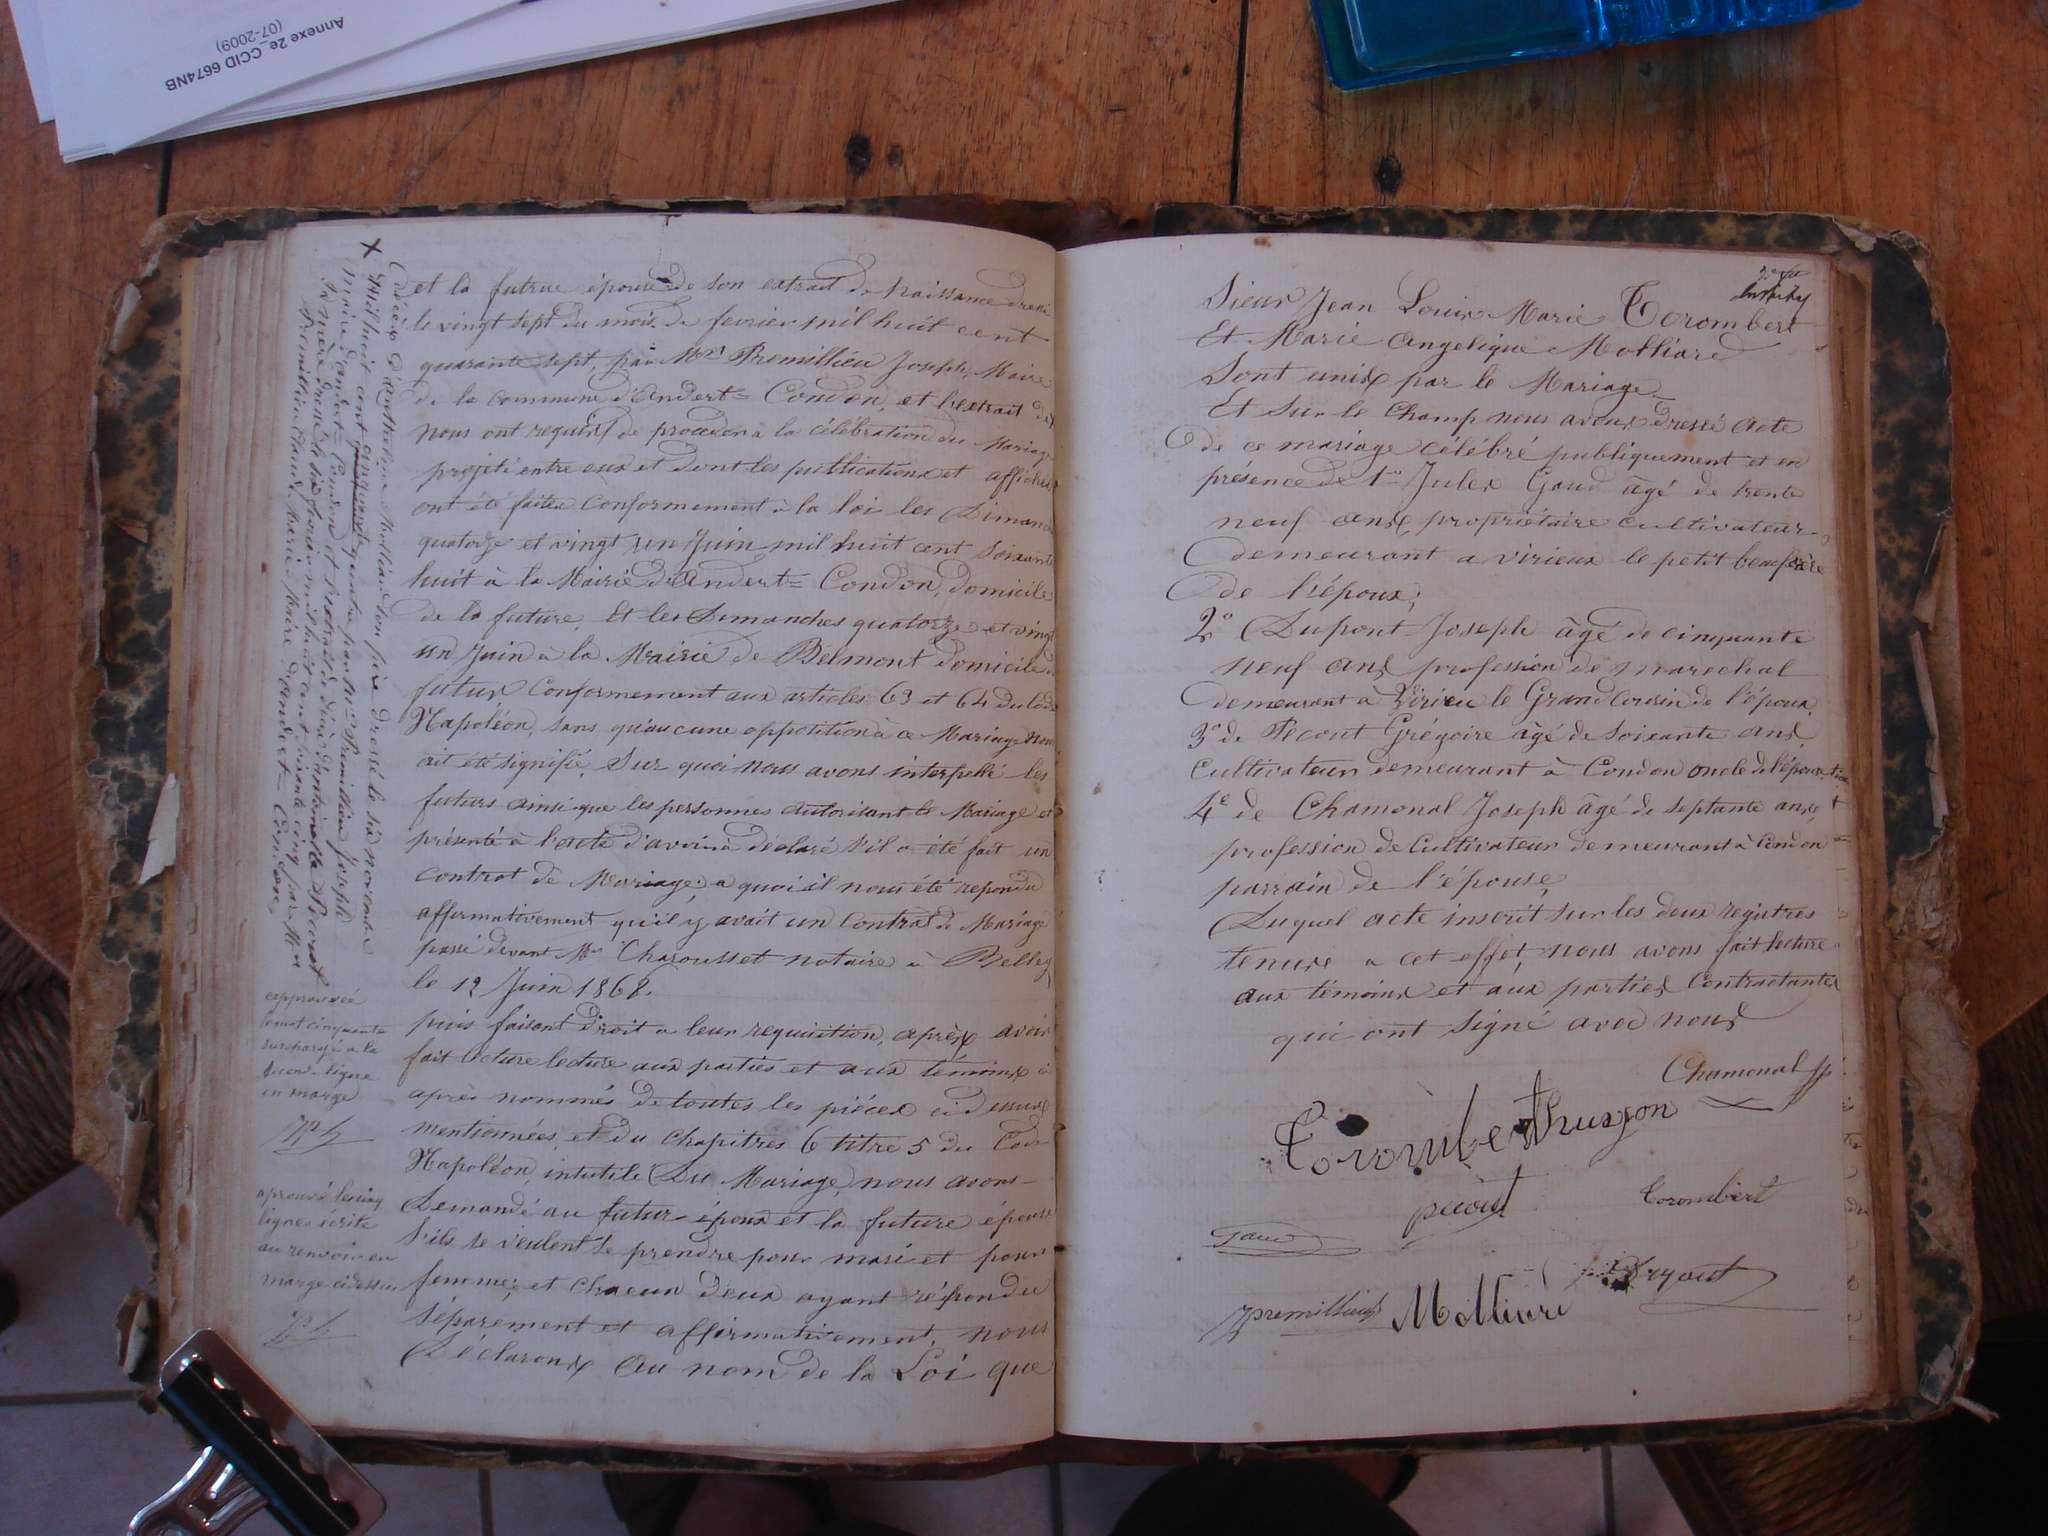 Annexe 2e_CCID 6674NB
(07-2009)
et la futrue épouse de son extrait de naissance dressé
le vingt sept du mois de fevrier mil huit cent
quarante sept, par Mr Premillieu Joseph, Maire
de la commune d'Andert=Condon, et l'extrait de
nous ont requis de proceder à la célébration du Mariage
projeté entre eux et dont les publications et affiches
ont été faites conformement à la loi les Dimanches
quatorze et vingt un Juin mil huit cent soixante
huit à la Mairie d'Andert=Condon, domicile
de la future. Et les Dimanches quatorze et vingt
un Juin à la Mairie de Belmont domicile du
futur conformement aux articles 63 et 64 du Code
Napoléon, sans qu'aucune opposition à ce Mariage nous
ait été signifié. Sur quoi nous avons interpellé les
futurs ainsi que les personnes autorisant le Mariage et
présenté à l'acte d'avoir à déclaré s'il a été fait un
contrat de Mariage; a quoi il nous été repondu
affirmativement qu'il y avait un contrat de Mariage
passé devant Me Charousset notaire à Belley
le 12 Juin 1868.
puis faisant droit a leur requisition, après avoir
fait lecture lecture aux parties et aux témoins ci
après nommés de toutes les pièces ci dessus
mentionnées et du chapitres 6 titre 5 du Code
Napoléon, intutile (Du Mariage, nous avons
Demandé au futur époux et la future épouse
s'ils se veulent se prendre pour mari et pour
femme; et chacun d'eux ayant répondu
séparement et affirmativement, nous
Déclarons Au nom de la Loi que
X décès d'Anthelme Molliard son père dressé le six novembre
Mil huit cent cinquante quatre par Mr Premillieu Joseph
maire d'andert=Condon et l'extrait de décès d'antoinette Pécout
sa mère dressé le six fevrier mil huit cent soixante cinq par Mr
Premillieu Claude Marie Maire d'andert=Condon,
approuvée
le mot cinquante
surchargé a la
second ligne
en marge
aprouvé les cinq
lignes écrite
au renvoi en
marge cidessus
Sieur Jean Louis Marie Torombert
Et Marie Angelique Molliard
Sont unis par le Mariage
Et Sur le Champ nous avons dressé Acte
de ce mariage célébré publiquement et en
présence de 1° Jules Gaud âgé de trente
neuf ans, propriétaire cultivateur
demeurant a virieux le petit beaufrère
de l'époux;
2° Dupont Joseph âgé de cinquante
neuf ans profession de marechal
demeurant à Virieu le Grand cousin de l'époux
3° de Pécout Grégoire âgé de soixante ans
cultivateur demeurant à Condon oncle de l'épouse
4e de Chamonal Joseph âgé de septante ans
profession de Cultivateur demeurant à Condon
parrain de l'épouse,
Duquel acte inscrit sur les deux registres
tenus a cet effet, nous avons fait lecture
aux témoins et aux parties Contractantes
qui ont signé avec nous
Chamonal
Torombert
pécout
Torombert
Gaud
premillieux
Molliard